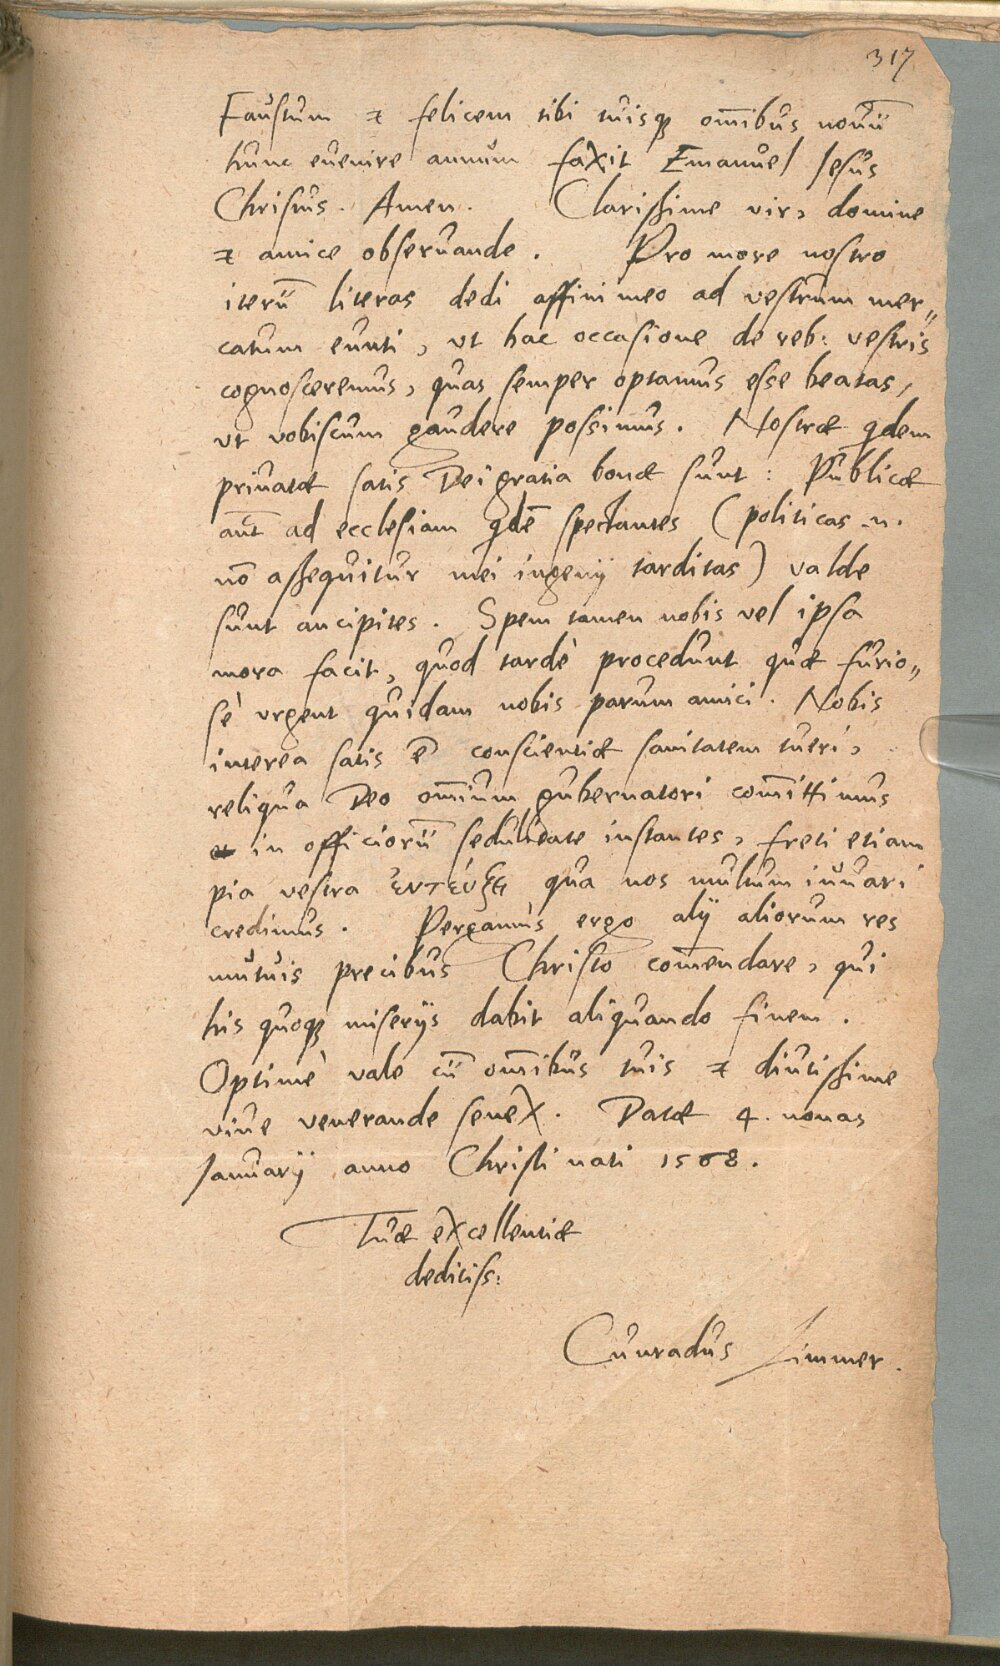 317
Faustum & felicem tibi tuisq3 om̄ibus nouū
hunc euenire annum faxit Emanuel Iesus
Christus. Amen. Clarissime vir, domine
& amice obseruande. Pro more nostro
iterū literas dedi affini meo ad vestrum mer„
catum eunti, vt hac occasione de reb: vestris
cognosceremus, quas semper optamus esse beatas,
vt vobiscum gaudere possimus. Nostræ qdem
priuatæ satis Dei gratia bonæ sunt: Publicæ
aūt ad ecclesiam qdē spectantes (politicas .n.
nō assequitur mei ingenij tarditas) valde
sunt ancipites. Spem tamen nobis vel ipsa
mora facit, quod tardè procedunt quæ furio„
sè vrgent quidam nobis parum amici. Nobis
interea satis ē conscientiæ sanitatem tueri,
reliqua Deo om̄ium gubernatori com̄ittimus
in officiorū sedulitate instantes, freti etiam
pia vestra ἐντεύξει qua nos multum iuuari
credimus. Pergamus ergo alij aliorum res
mutuis precibus Christo com̄endare, qui
his quoq3 miserijs dabit aliquando finem.
Optimè vale cū om̄ibus tuis & diutissime
viue venerande senex. Datæ 4. nonas
Ianuarij anno Christi nati 1568.
Tuæ excellentiæ
deditiss:
Cunradus Zimmer.